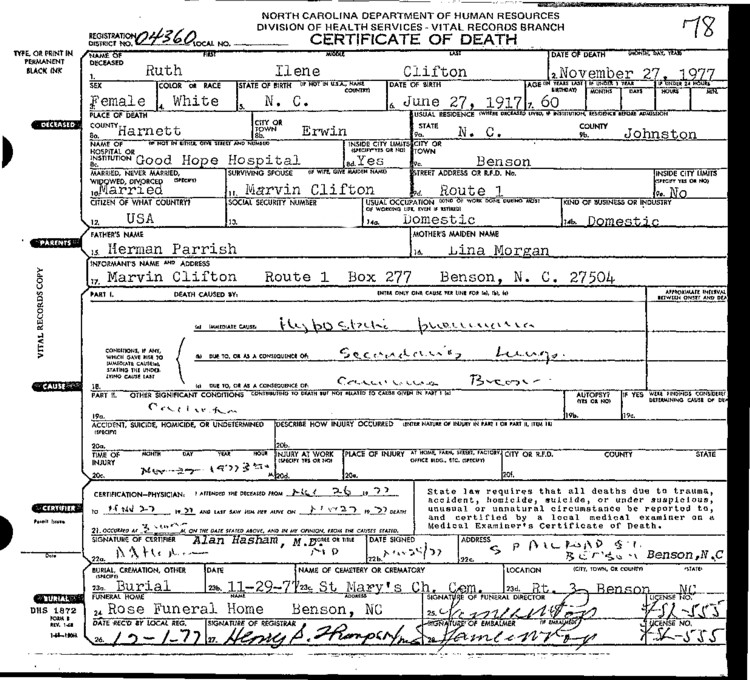 NORTH CAROLINA DEPARTMENT OF HUMAN RESOURCES
DIVISION OF HEALTH SERVICES - VITAL RECORDS BRANCH
CERTIFICATE OF DEATH
78
REGISTRATION DISTRICT NO. 04360 LOCAL NO.
TYPE, OR PRINT IN PERMANENT BLACK INK
NAME OF DECEASED FIRST MIDDLE LAST DATE OF DEATH (MONTH, DAY, YEAR)
1. Ruth Ilene Clifton 2. November 27, 1977
SEX COLOR OR RACE STATE OF BIRTH (IF NOT IN U.S.A., NAME COUNTRY) DATE OF BIRTH AGE (IN YEARS LAST BIRTHDAY) IF UNDER 1 YEAR MONTHS DAYS IF UNDER 24 HOURS HOURS MIN.
3. Female 4. White 5. N. C. 6. June 27, 1917 7. 60
DECEASED
PLACE OF DEATH USUAL RESIDENCE (WHERE DECEASED LIVED, IF INSTITUTION, RESIDENCE BEFORE ADMISSION
COUNTY CITY OR TOWN STATE COUNTY
8a. Harnett 8b. Erwin 9a. N. C. 9b. Johnston
NAME OF HOSPITAL OR INSTITUTION (IF NOT IN EITHER, GIVE STREET AND NUMBER) INSIDE CITY LIMITS (SPECIFY YES OR NO) CITY OR TOWN
8c. Good Hope Hospital 8d. Yes 9c. Benson
MARRIED, NEVER MARRIED, WIDOWED, DIVORCED (SPECIFY) SURVIVING SPOUSE (IF WIFE, GIVE MAIDEN NAME) STREET ADDRESS OR R.F.D. No. INSIDE CITY LIMITS (SPECIFY YES OR NO)
10. Married 11. Marvin Clifton 9d. Route 1 9e. No
CITIZEN OF WHAT COUNTRY? SOCIAL SECURITY NUMBER USUAL OCCUPATION (KIND OF WORK DONE DURING MOST OF WORKING LIFE, EVEN IF RETIRED) KIND OF BUSINESS OR INDUSTRY
12. USA 13. 14a. Domestic 14b. Domestic
PARENTS
FATHER'S NAME MOTHER'S MAIDEN NAME
15. Herman Parrish 16. Lina Morgan
INFORMANT'S NAME AND ADDRESS
17. Marvin Clifton Route 1 Box 277 Benson, N. C. 27504
VITAL RECORDS COPY
PART I. DEATH CAUSED BY: ENTER ONLY ONE CAUSE PER LINE FOR (a), (b), (c) APPROXIMATE INTERVAL BETWEEN ONSET AND DEA
(a) IMMEDIATE CAUSE Hypostatic pneumonia
CONDITIONS, IF ANY, WHICH GAVE RISE TO IMMEDIATE CAUSE(a), STATING THE UNDERLYING CAUSE LAST
(b) DUE TO, OR AS A CONSEQUENCE OF: Secondaries Lungs.
CAUSE
18. (c) DUE TO, OR AS A CONSEQUENCE OF: Carcinoma Breast
PART II. OTHER SIGNIFICANT CONDITIONS CONTRIBUTING TO DEATH BUT NOT RELATED TO CAUSE GIVEN IN PART I (a) AUTOPSY? (YES OR NO) IF YES WERE FINDINGS CONSIDERED DETERMINING CAUSE OF DEA
19a. 19b. 19c.
ACCIDENT, SUICIDE, HOMICIDE, OR UNDETERMINED (SPECIFY) DESCRIBE HOW INJURY OCCURRED (ENTER NATURE OF INJURY IN PART I OR PART II, ITEM 18)
20a. 20b.
TIME OF INJURY MONTH DAY YEAR HOUR INJURY AT WORK (SPECIFY YES OR NO) PLACE OF INJURY AT HOME, FARM, STREET, FACTORY, OFFICE BLDG., ETC. (SPECIFY) CITY OR R.F.D. COUNTY STATE
20c. Nov 27 1977 M 20d. 20e. 20f.
CERTIFIER
CERTIFICATION—PHYSICIAN: I ATTENDED THE DECEASED FROM 26 19 77
TO Nov 27 19 77 AND LAST SAW HIM HER ALIVE ON Nov 27 19 77 DEATH
21. OCCURRED AT 3 M ON THE DATE STATED ABOVE, AND IN MY OPINION, FROM THE CAUSES STATED.
State law requires that all deaths due to trauma, accident, homicide, suicide, or under suspicious, unusual or unnatural circumstance be reported to, and certified by a local medical examiner on a Medical Examiner's Certificate of Death.
SIGNATURE OF CERTIFIER Alan Hasham, M.D. DEGREE OR TITLE DATE SIGNED ADDRESS
22a. MD 22b. 22c. Benson, N.C
Date
BURIAL, CREMATION, OTHER (SPECIFY) DATE NAME OF CEMETERY OR CREMATORY LOCATION (CITY, TOWN, OR COUNTY) (STATE)
23a. Burial 23b. 11-29-77 23c. St Mary's Ch. Cem. 23d. Rt. 3 Benson NC
BURIAL
FUNERAL HOME NAME ADDRESS SIGNATURE OF FUNERAL DIRECTOR LICENSE NO.
24. Rose Funeral Home Benson, NC 25. FSL-555
DHS 1872
FORM 8
REV. 1-68
DATE REC'D BY LOCAL REG. SIGNATURE OF REGISTRAR SIGNATURE OF EMBALMER (IF EMBALMED) LICENSE NO.
26. 12-1-77 27. Henry S. Thompson 28. FSL-555